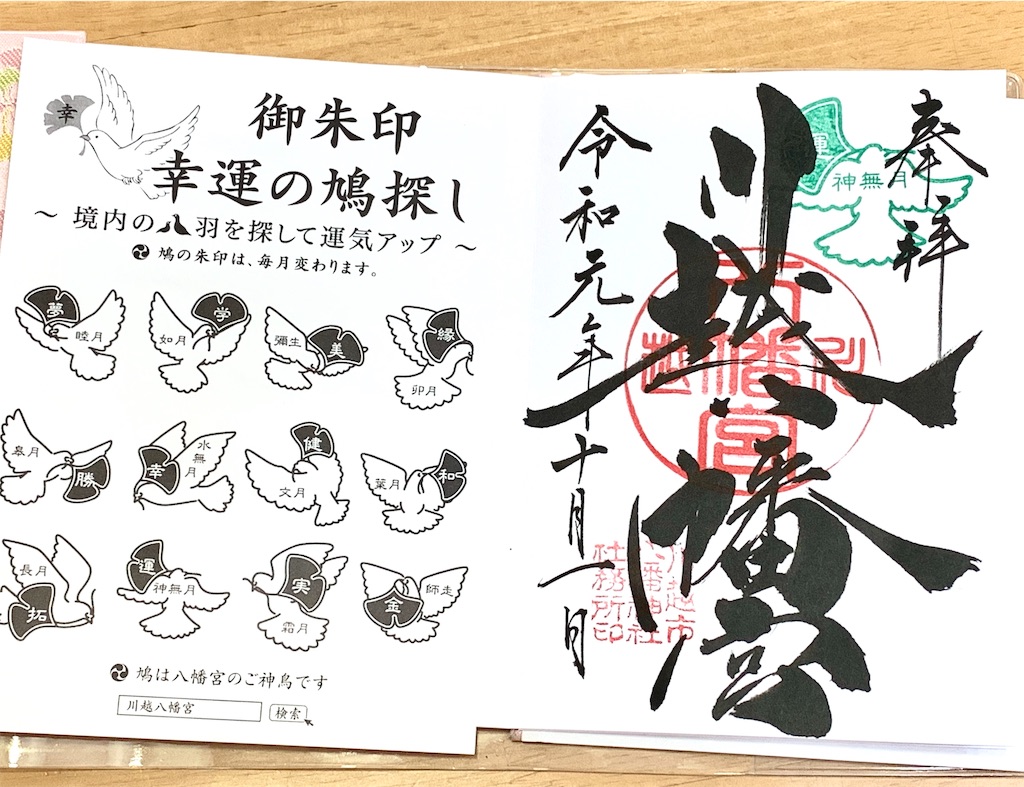 幸
御朱印
幸運の鳩探し
～ 境内の八羽を探して運気アップ ～
鳩の朱印は、毎月変わります。
夢 睦月
学 如月
美 彌生
縁 卯月
勝 皐月
幸 水無月
健 文月
和 葉月
拓 長月
運 神無月
実 霜月
金 師走
鳩は八幡宮のご神鳥です
川越八幡宮 検索
奉拝
運 神無月
川越八幡宮
川越
八幡宮
川越市
八幡神社
社務所印
令和元年十月一日